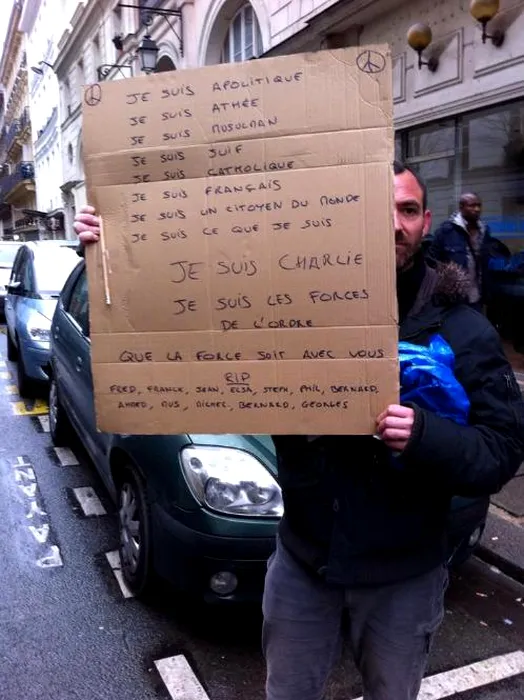 JE SUIS APOLITIQUE
JE SUIS ATHÉE
JE SUIS MUSULMAN
JE SUIS JUIF
JE SUIS CATHOLIQUE
JE SUIS FRANÇAIS
JE SUIS UN CITOYEN DU MONDE
JE SUIS CE QUE JE SUIS
JE SUIS CHARLIE
JE SUIS LES FORCES
DE L'ORDRE
QUE LA FORCE SOIT AVEC VOUS
RIP
FRED, FRANCK, JEAN, ELSA, STEPH, PHIL, BERNARD,
AHMED, MUS, MICHEL, BERNARD, GEORGES
PAYANT